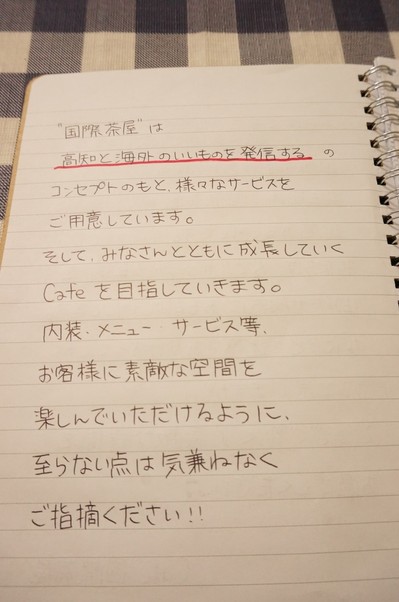 "国際茶屋"は
高知と海外のいいものを発信する の
コンセプトのもと、様々なサービスを
ご用意しています。
そして、みなさんとともに成長していく
Cafe を目指していきます。
内装・メニュー・サービス等、
お客様に素敵な空間を
楽しんでいただけるように、
至らない点は気兼ねなく
ご指摘ください!!